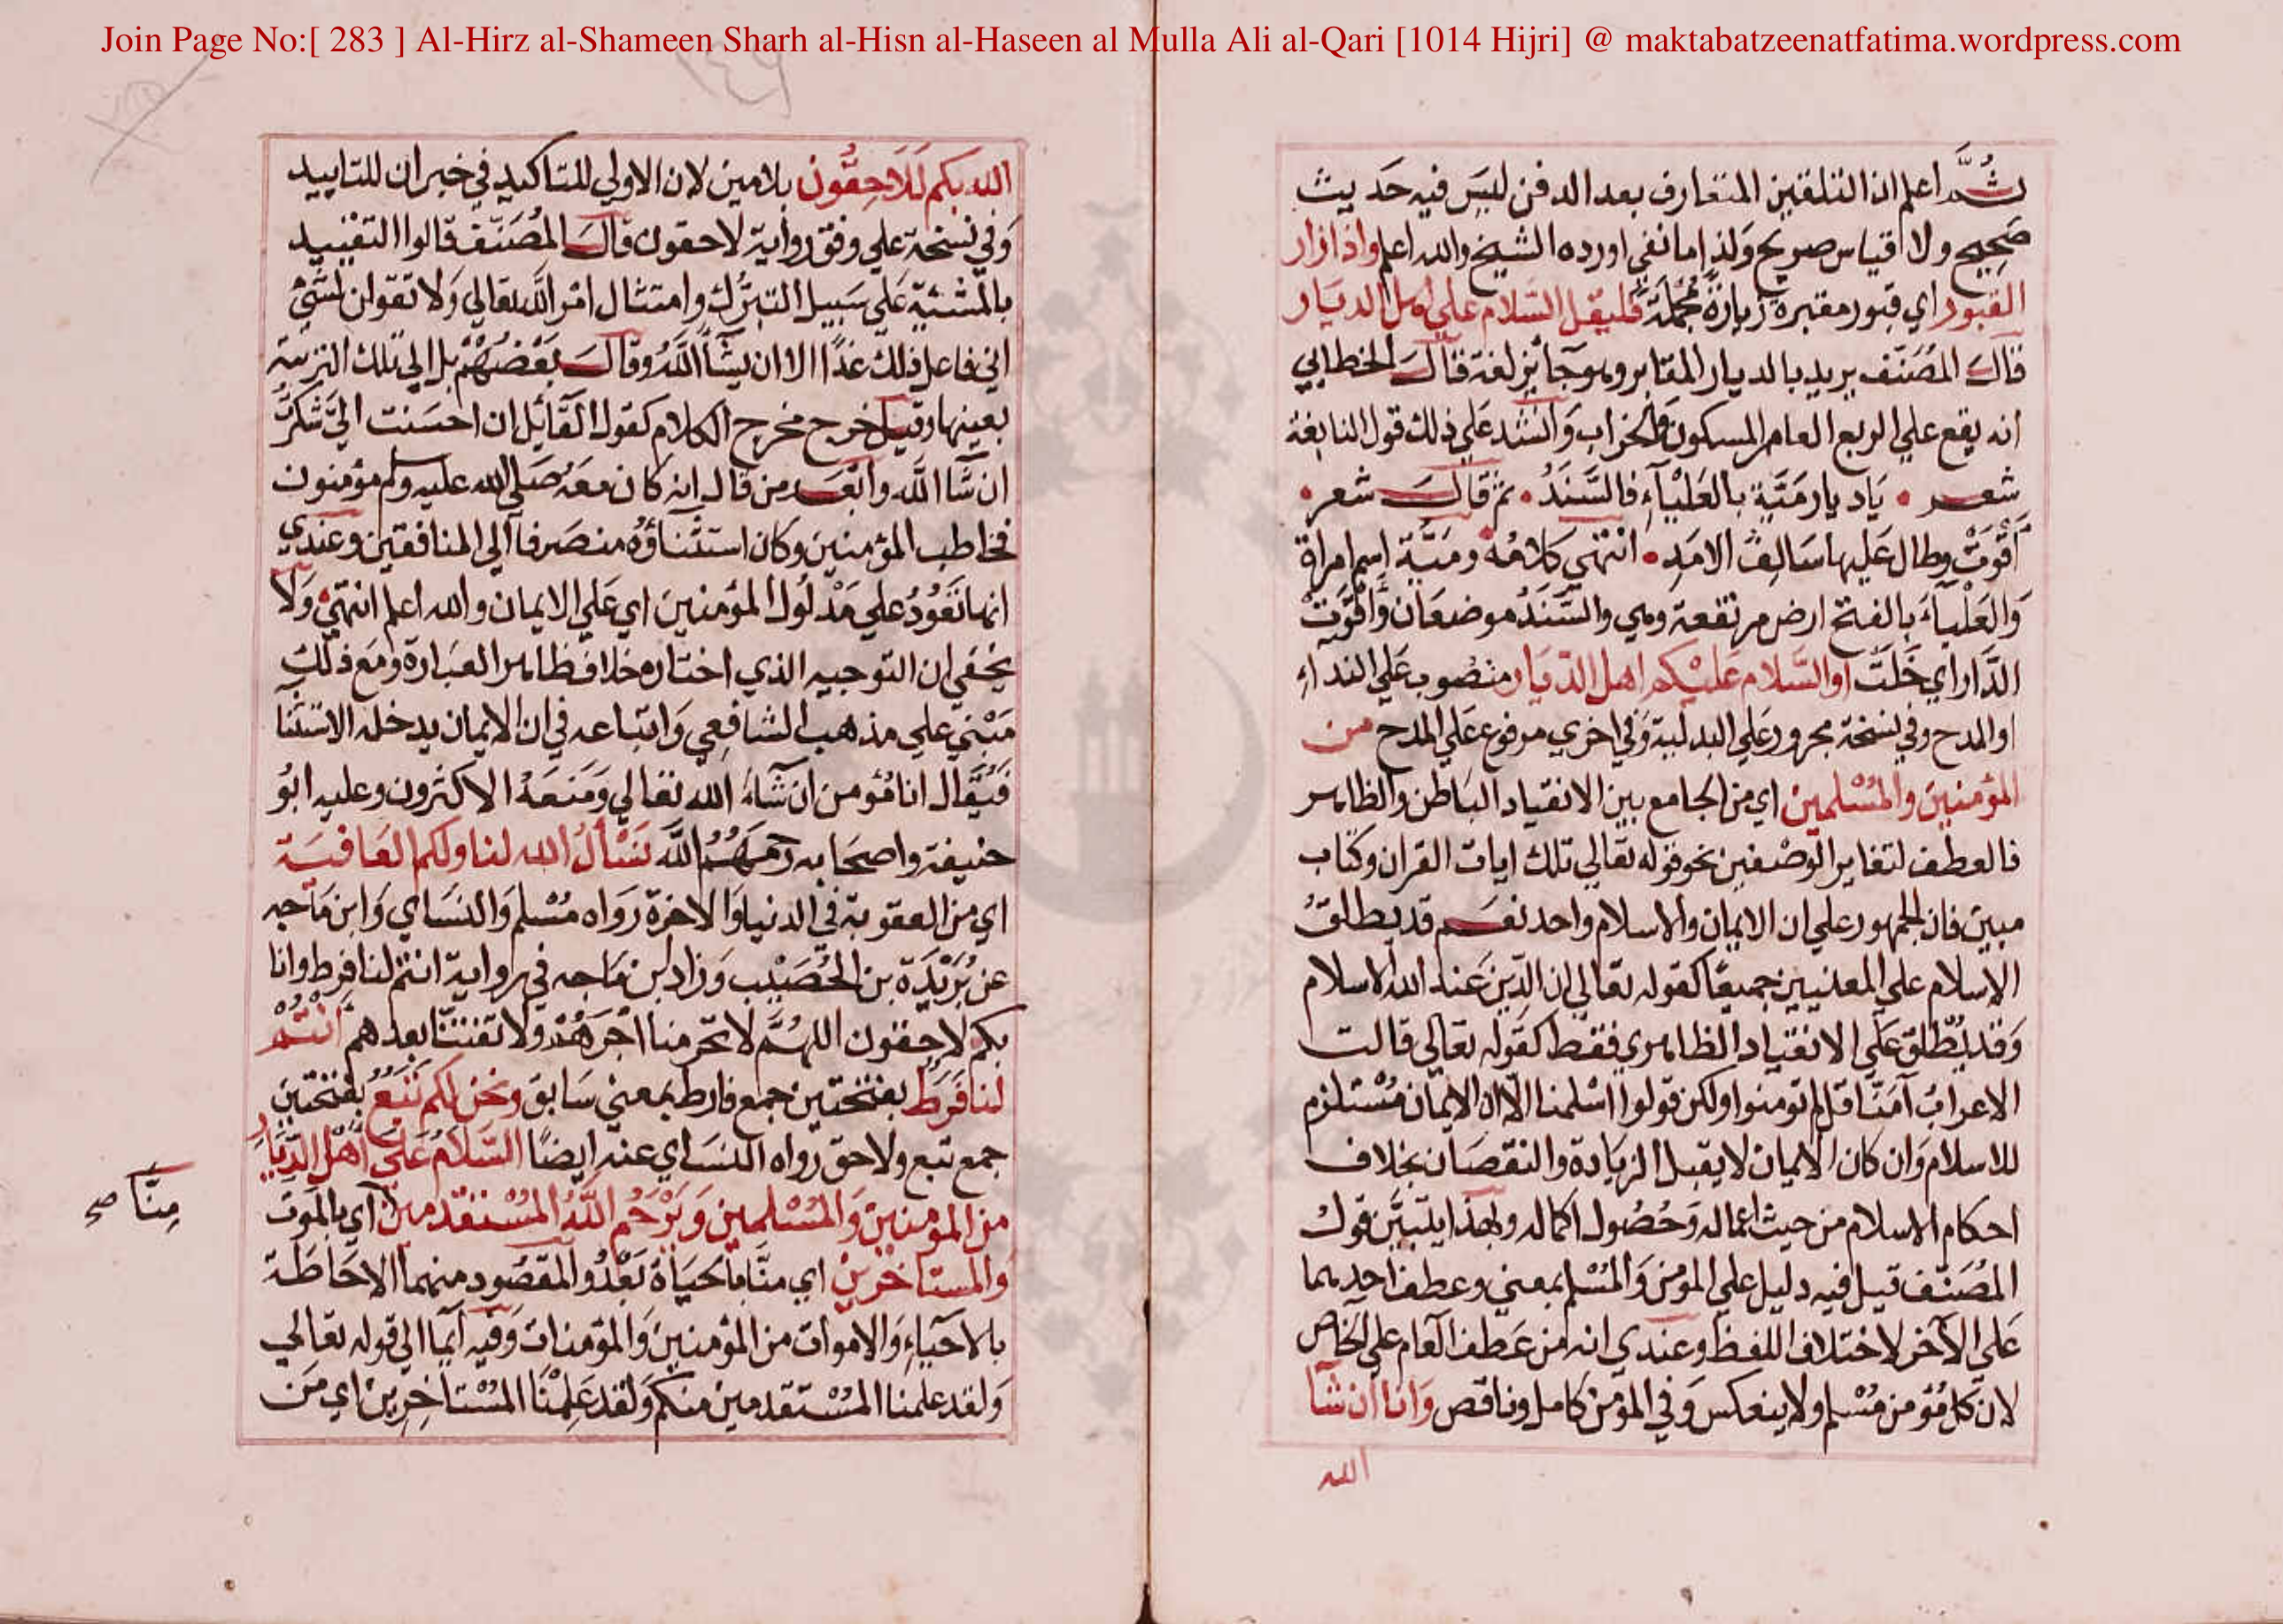 Join Page No:[ 283 ] Al-Hirz al-Shameen Sharh al-Hisn al-Haseen al Mulla Ali al-Qari [1014 Hijri] @ maktabatzeenatfatima.wordpress.com
ثُمَّ اعلم ان التلقين المتعارف بعد الدفن ليس فيه حديث
صحيح ولا اقياس صريح ولذا ما نفي اورده الشيخ والله اعلم واذا زار
القبور اي قبور مقبرة زيارة مُجملَة فليقل السّلام علي اهل الديار
قال المُصَنّف يريد بالديار المقابر وهو جائز لغة قال الخطابي
انه يقع علي الربع العامر المسكون والخراب وَانشد علي ذلك قول النابغة
شعر • يَا ديار مَيَّة بالعَلْيَآءِ فالسَّنَدُ • ثم قال شعر •
أَقْوَتْ وطال عَليها سَالِفُ الامَدِ • انتهي كلامُهُ ومَيَّة اسم امراة
وَالعَلْيآءُ بالفتح ارض مرتفعة وهي والسَّنَدُ موضعَان وَأَقْوَتْ
الدَّار اي خَلَتْ او السَّلام عَليْكم اهل الدّيَار منصُوب علي النداءِ
او المدح وفي نسخة مجرور عَلي البدلية وَفي اخري مرفوع عَلي المدح من
المؤمنينَ والمُسْلمين اي من الجامع بين الانقياد البَاطن والظاهر
فالعطف لتغاير الوصْفين نحو قوله تعَالي تلك ايات القران وكتاب
مبين فان الجمهور علي ان الايمان والاسلام واحد نعَم قد يطلقُ
الاسلام علي المعنيين جميعًا كقوله تعَالي ان الدّين عَند الله الاسلام
وَقد يُطْلق عَلي الانقياد الظاهري فقط كقوله تعَالي قالت
الاعرابُ آمَنَّا قل لم تومنوا ولكن قولوا اسْلمنا الّا ان الايمان مُسْتلزم
للاسلام وَان كان الايمان لا يقبل الزيَادة والنقصَان بخلاف
احكام الاسلام من حيث اعماله وَحُصُول اكماله وبهذا يتبيّن قول
المُصَنّف قيل فيه دليل علي المومن وَالمُسْلم بمعني وعطف احدهما
عَلي الآخر لاختلاف اللفظ وعندي انه من عَطف العام علي الخاص
لان كل مُؤمن مُسْلم ولا ينعكس وَفي المؤمن كامل وناقص وَانا ان شآ
الله
الله بكم لَلَاحِقُون بلامين لان الاولي للتاكيد في خبر ان للتاييد
وَفي نسخة علي وفق رواية لاحقون قال المُصَنّف قالوا التقييد
بالمشيّة عَلي سَبيل التبرُّك وامتثال امْر الله تعَالي وَلا تقولن لشَيْ
اني فاعل ذلك غدًا الا ان يشآ اللهُ وقال بَعْضُهُمْ بل الي تلك التربة
بعينها وقيل خرج مخرج الكلام كقول القائل ان احسَنت اليَّ شكرتُ
ان شآ الله وابْعَد من قال انه كان معَهُ صَلي الله عليه وسلم مؤمنون
فخاطب المؤمنين وكان استثناؤُهُ منصَرفا الي المنافقين وعندي
انها تعُودُ علي مَدْلُول المؤمنين اي عَلي الايمان والله اعلم انتهي وَلا
يخفي ان التوجيه الذي اختاره خلاف ظاهر العبَارة ومَع ذلك
مَبْني علي مذهب الشافِعي وَاتباعه في ان الايمان يدخله الاستثنا
فَيُقال انا مُؤمن ان شآءَ الله تعَالي وَمَنعَهُ الاكثرون وعليه ابُو
حنيفة واصحَابه رحمَهُمُ الله نَسْألُ الله لنا ولكم العَافيَة
اي من العقوبة في الدنيا وَالاخرة رَواه مُسْلم وَالنسَاي وَابن مَاجه
عن بُرَيْدَة بن الحُصَيْب وَزاد ابن مَاجه في رواية انتم لنا فرط وانا
بكم لاحقون اللهُمَّ لا تحرمنا اجْرَهُمْ ولا تفتنّا بعدهم أنْتُمْ
لنا فَرَط بفتحتين جمع فارط بمعني سَابق ونحن لكم تَبَعٌ بفتحتين
جمع تبع ولاحق رواه النسَاي عنه ايضًا السَّلَامُ عَلَي أهْل الدِّيَار
من المومنين وَالمُسْلمين وَيَرْحَم اللَّهُ المُسْتقدمين اي بالموت
منّا صح
والمستاخرين اي منّا بالحيَاة بَعْدُ والمَقصُود منهما الاحَاطة
بالاحيَاءِ وَالاموات من المؤمنين وَالمؤمنات وَفيه ايمَا الي قوله تعَالي
وَلقد علمنا المُسْتقدمين منكم وَلقد عَلِمْنَا المُسْتاخِرين اي مَن